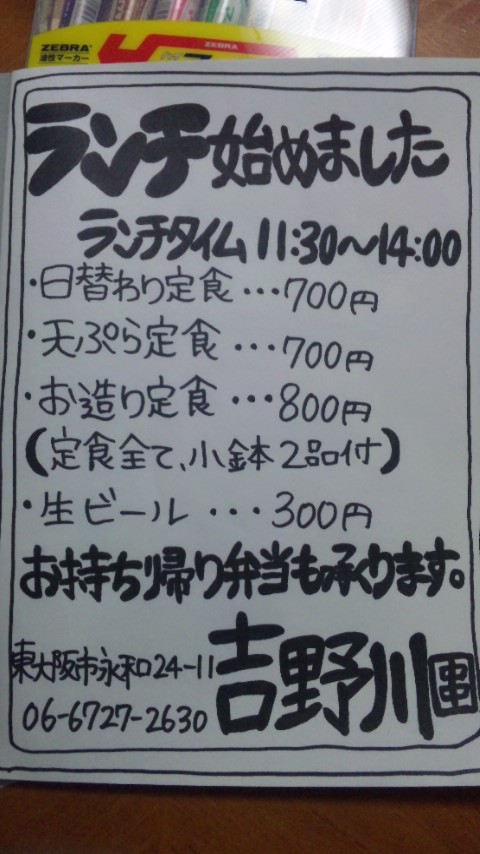 ZEBRA
油性マーカー
ランチ始めました
ランチタイム 11:30〜14:00
・日替わり定食…700円
・天ぷら定食…700円
・お造り定食…800円
(定食全て、小鉢2品付)
・生ビール…300円
お持ち帰り弁当も承ります。
東大阪市永和2-4-11
06-6727-2630
吉野川 串